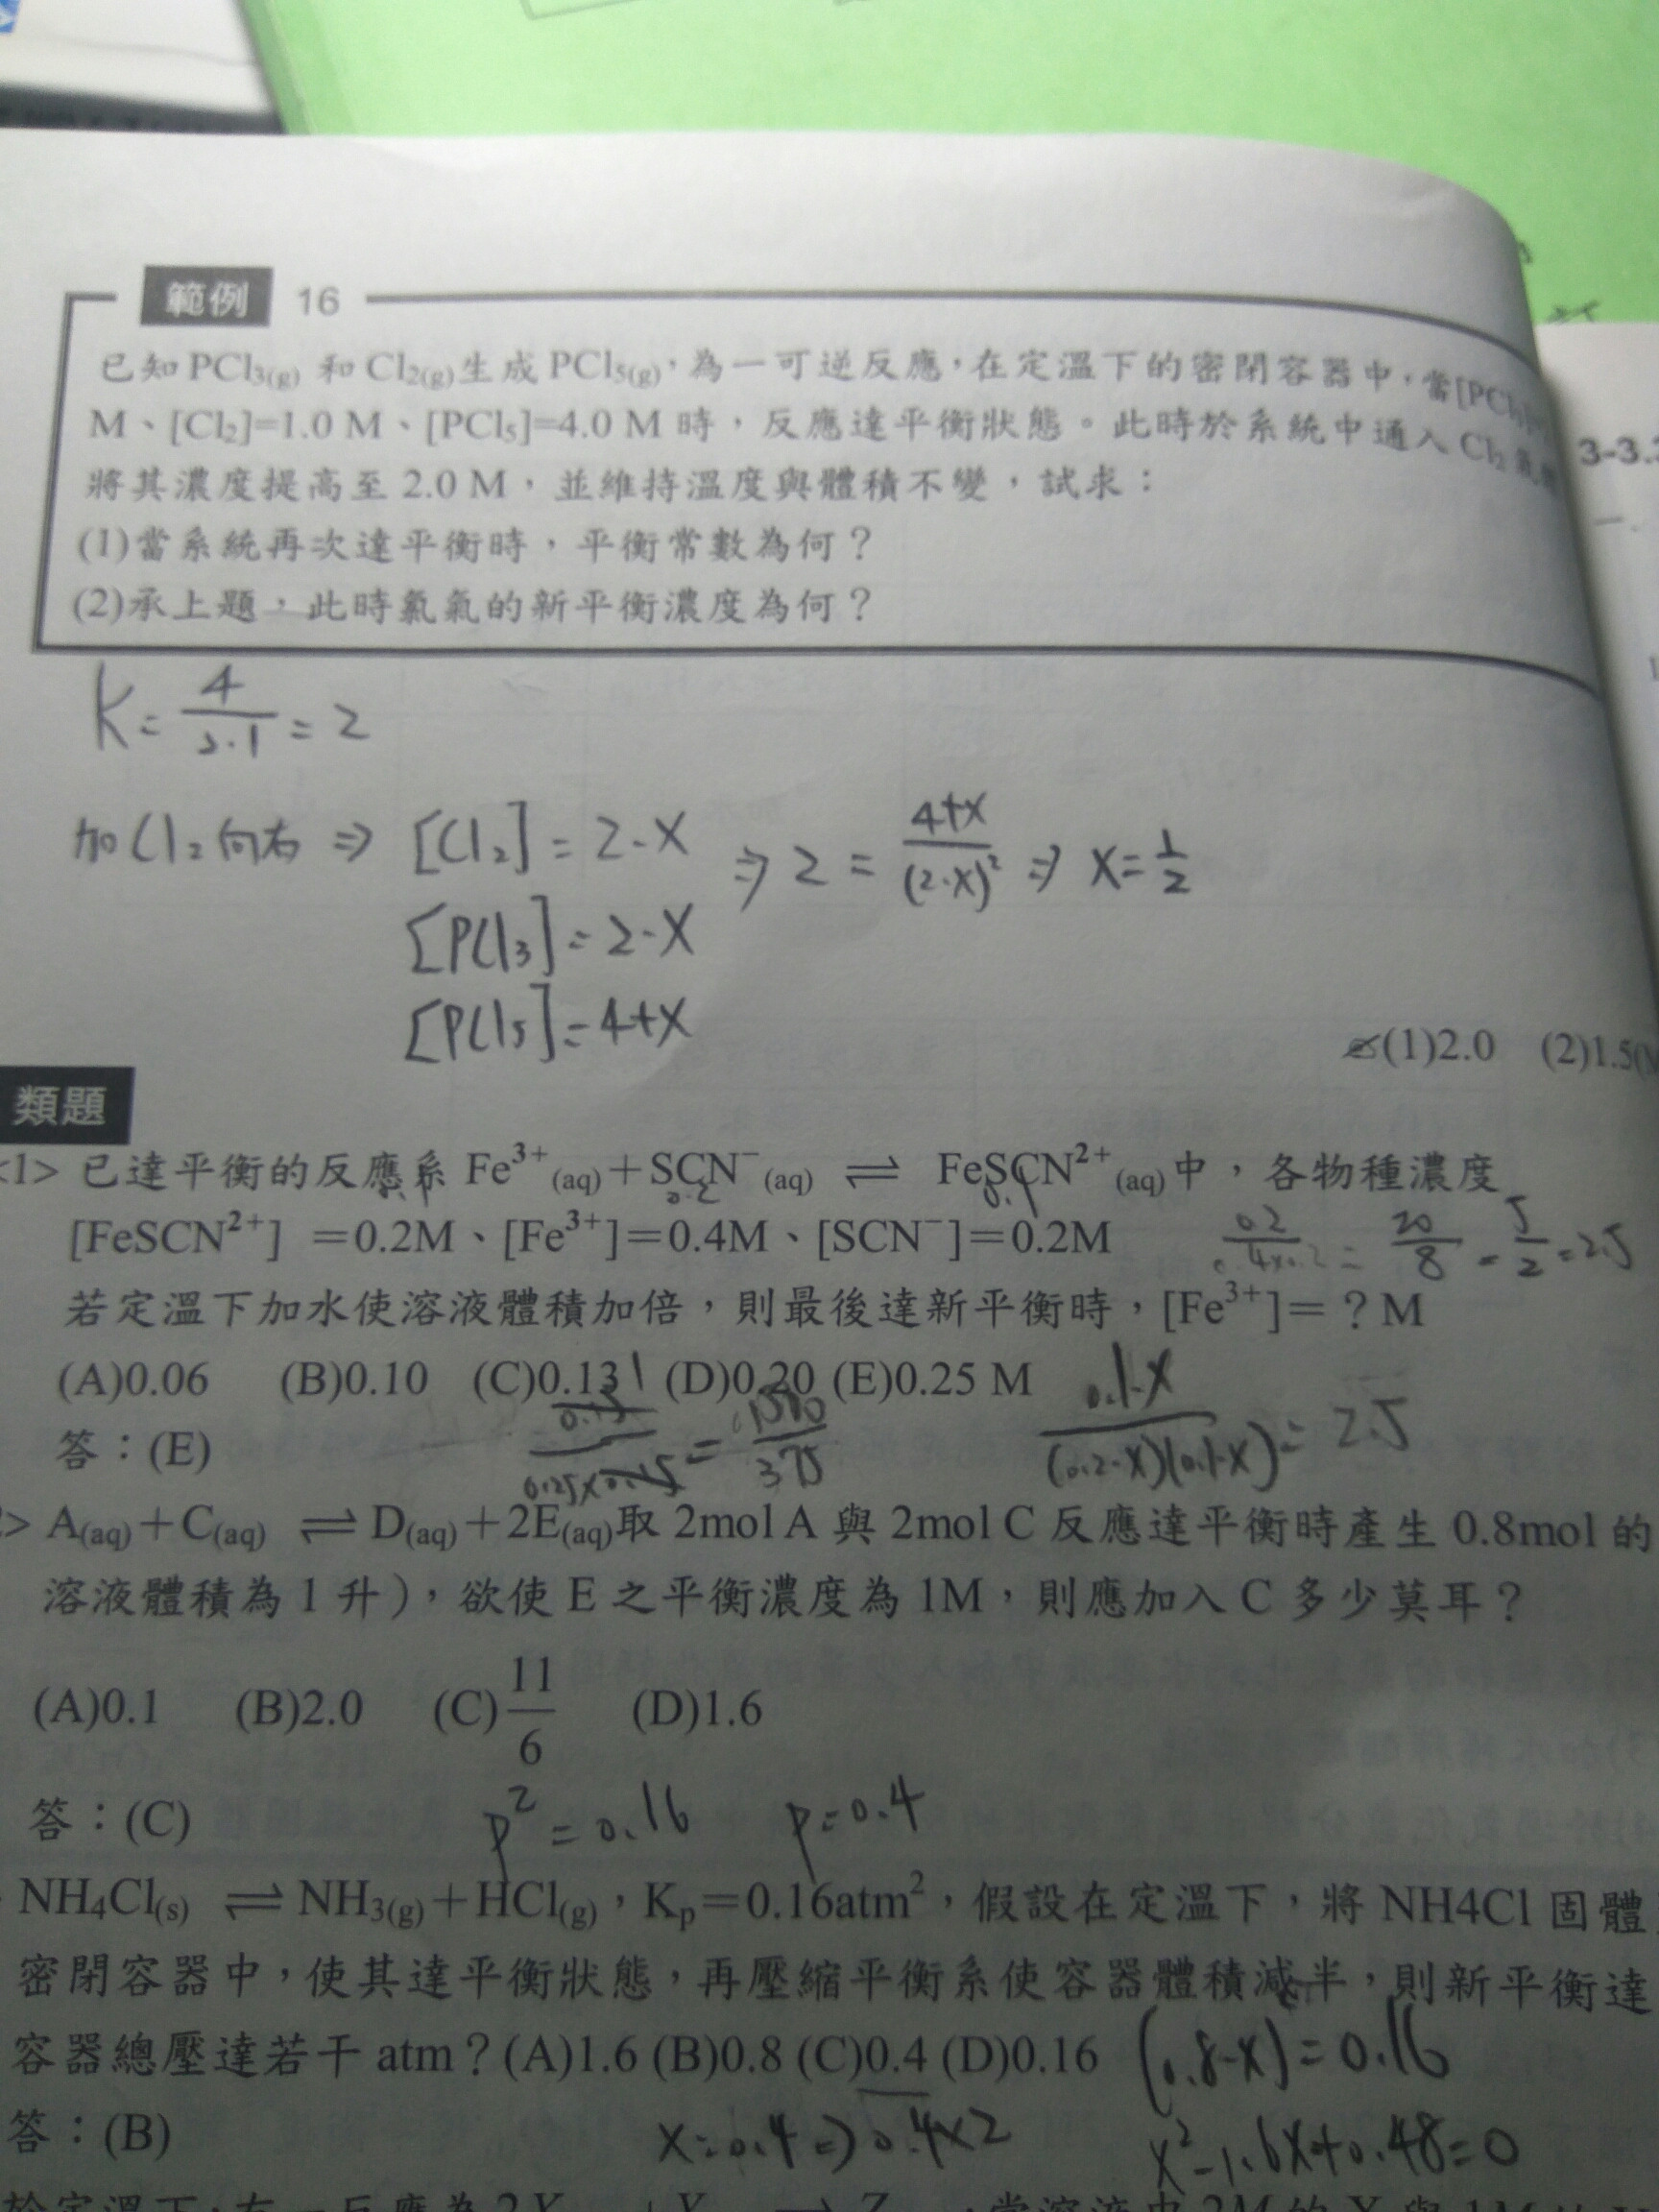 範例 16
已知 PCl3(g) 和 Cl2(g)生成 PCl5(g)，為一可逆反應，在定溫下的密閉容器中，當[PCl3]
M、[Cl2]=1.0 M、[PCl5]=4.0 M 時，反應達平衡狀態。此時於系統中通入 Cl2 氣
將其濃度提高至 2.0 M，並維持溫度與體積不變，試求：
(1)當系統再次達平衡時，平衡常數為何？
(2)承上題，此時氯氣的新平衡濃度為何？
K = 4/2·1 = 2
加Cl2向右 ⇒ [Cl2] = 2-X ⇒ 2 = 4+X/(2-X)² ⇒ X=1/2
[PCl3] = 2-X
[PCl5] = 4+X
(1)2.0 (2)1.5(
類題
<1> 已達平衡的反應系 Fe³⁺(aq)＋SCN⁻(aq) ⇌ FeSCN²⁺(aq)中，各物種濃度
0.2 0.1
[FeSCN²⁺] ＝0.2M、[Fe³⁺]＝0.4M、[SCN⁻]＝0.2M
0.2/0.4×0.2 = 20/8 = 5/2 = 2.5
若定溫下加水使溶液體積加倍，則最後達新平衡時，[Fe³⁺]＝？M
(A)0.06 (B)0.10 (C)0.131 (D)0.20 (E)0.25 M
0.1-X/(0.2-X)(0.1-X) = 2.5
答：(E)
> A(aq)＋C(aq) ⇌ D(aq)＋2E(aq)取 2mol A 與 2mol C 反應達平衡時產生 0.8mol 的
溶液體積為 1 升)，欲使 E 之平衡濃度為 1M，則應加入 C 多少莫耳？
(A)0.1 (B)2.0 (C)11/6 (D)1.6
答：(C)
P² = 0.16 P=0.4
NH4Cl(s) ⇌ NH3(g)＋HCl(g)，Kp＝0.16atm²，假設在定溫下，將 NH4Cl 固體
密閉容器中，使其達平衡狀態，再壓縮平衡系使容器體積減半，則新平衡達
容器總壓達若干 atm？(A)1.6 (B)0.8 (C)0.4 (D)0.16
(0.8-X) = 0.16
答：(B)
X=0.4 ⇒ 0.4×2
X²-1.6X+0.48=0